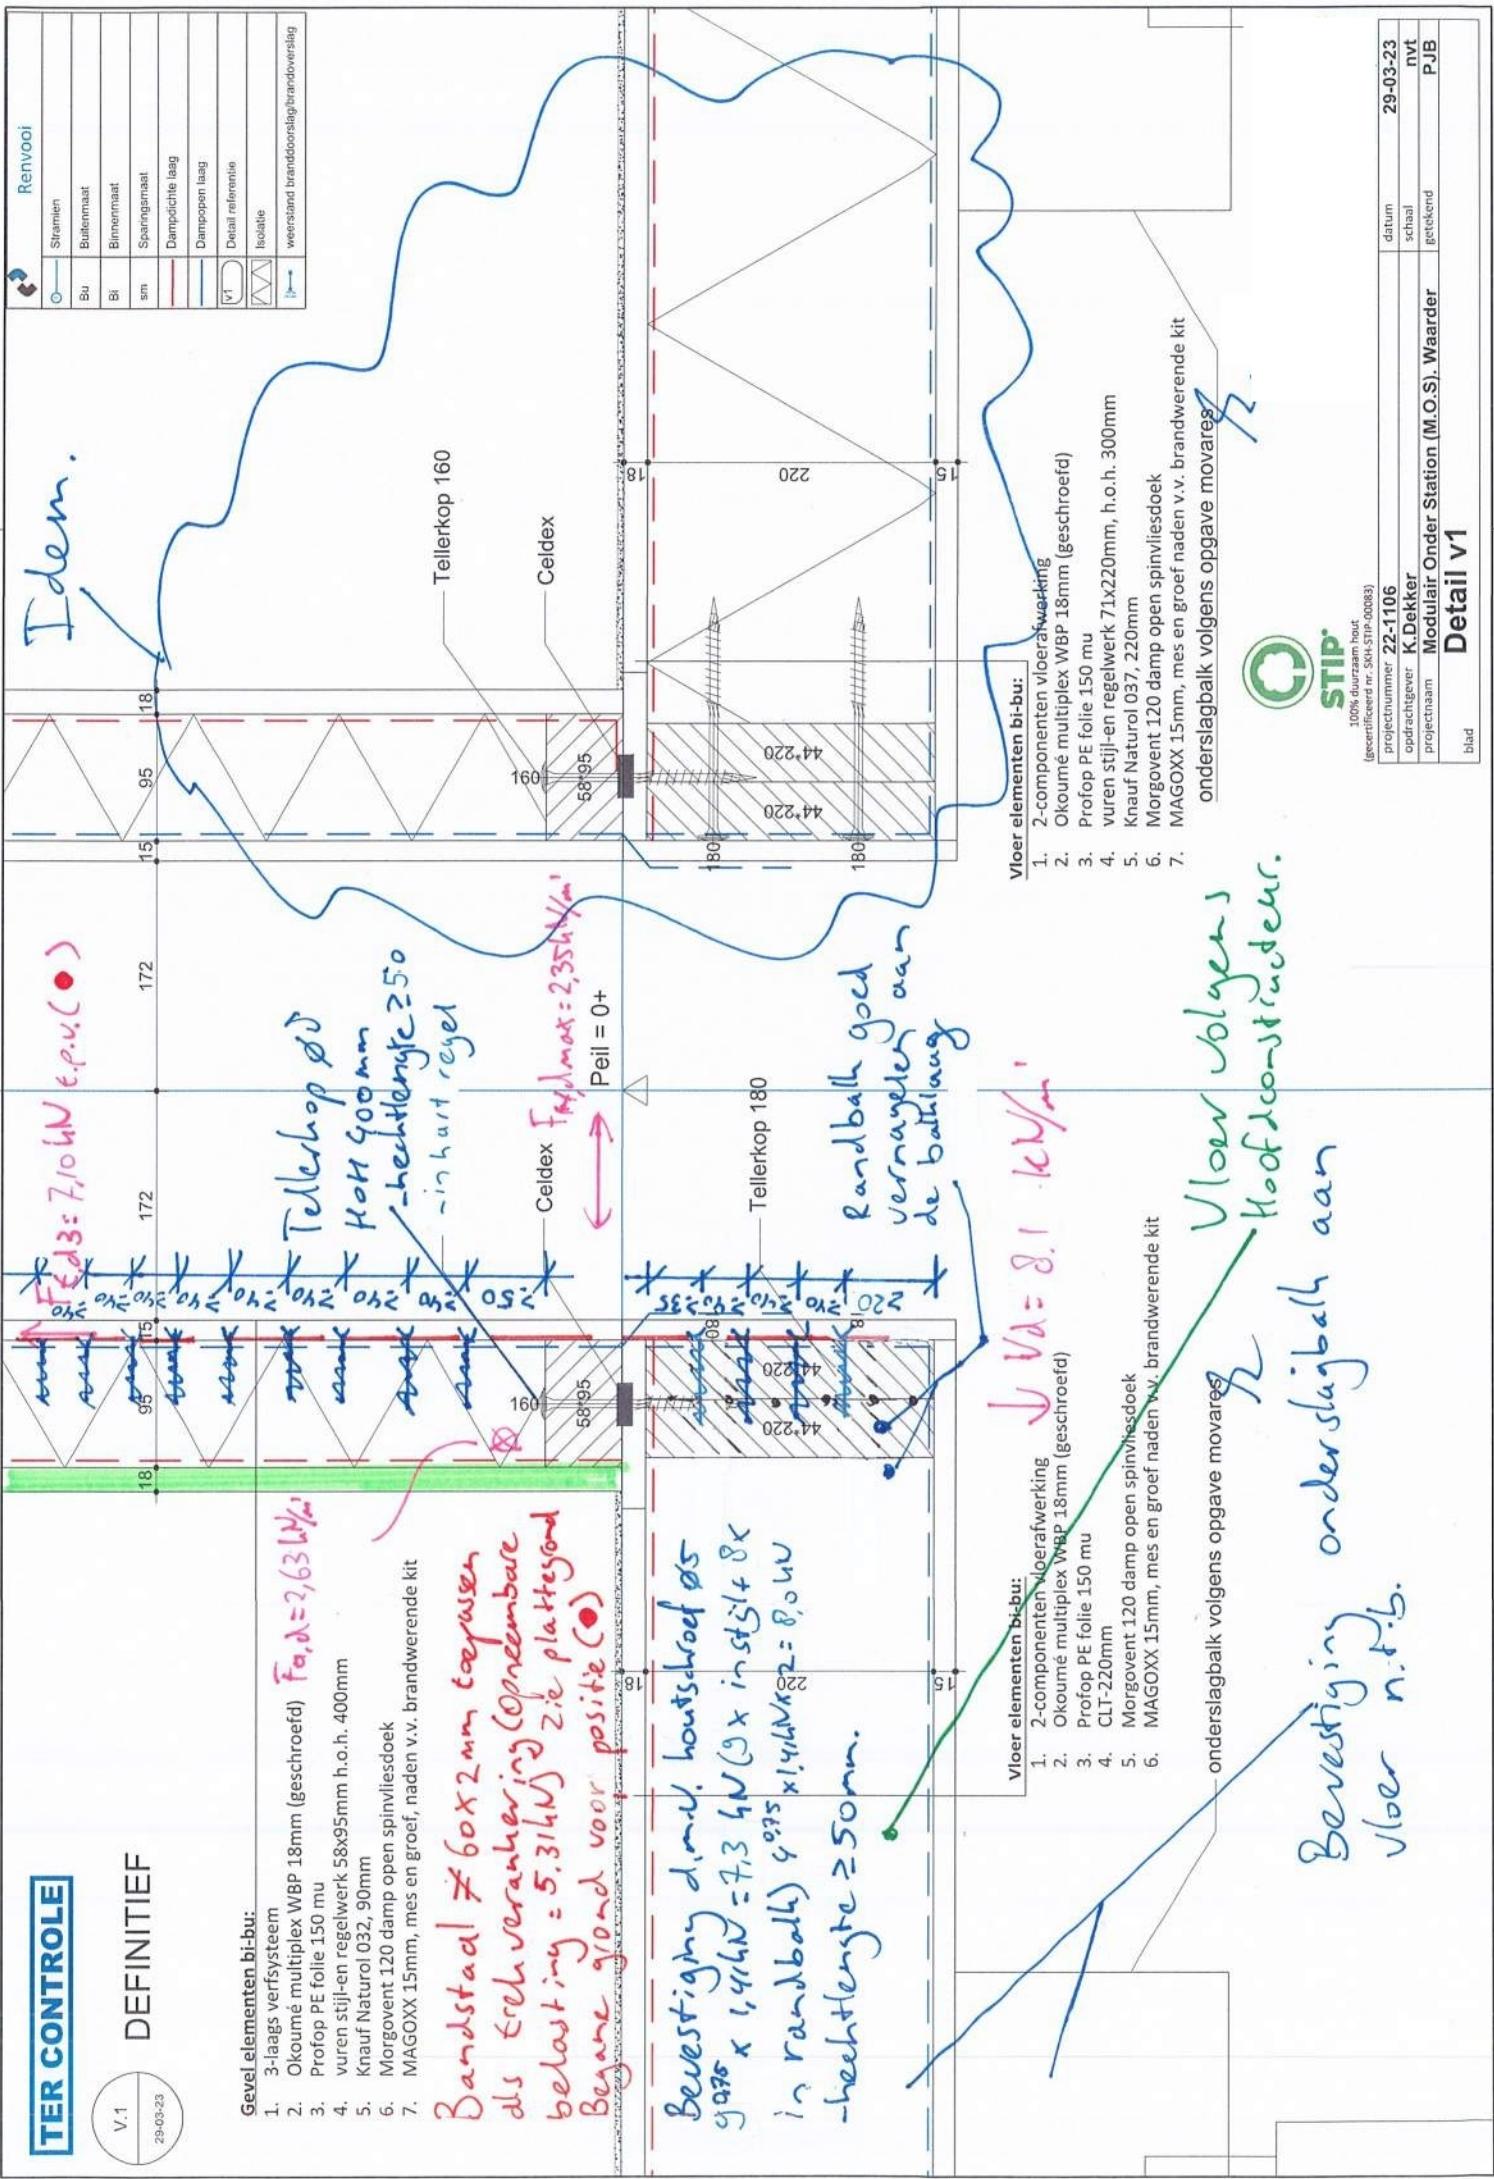 TER CONTROLE
V.1
29-03-23
DEFINITIEF
Gevel elementen bi-bu:
1. 3-laags verfsysteem
2. Okoumé multiplex WBP 18mm (geschroefd)
3. Profop PE folie 150 mu
4. vuren stijl-en regelwerk 58x95mm h.o.h. 400mm
5. Knauf Naturol 032, 90mm
6. Morgovent 120 damp open spinvliesdoek
7. MAGOXX 15mm, mes en groef, naden v.v. brandwerende kit
Fa,d=2,63kN/m'
Bandstaal ≠ 60x2mm toepassen
als trekverankering (opneembare
belasting = 5.31kN) zie plattegrond
Begane grond voor positie (●)
Bevestiging d.m.v. houtschroef ø5
9^0.75 x 1,41kN = 7,3 kN (9x in stijl + 8x
in randbalk) 4^0.75 x 1,41kN x 2 = 8,0kN
-hechtlengte ≥50mm.
Ft,d3= 7,10kN t.p.v. (●)
18
95
15
172
172
15
95
18
≥40
≥40
≥40
≥40
≥40
≥40
≥40
≥40
≥50
≥35
≥40
≥40
≥40
220
Tellerkop ø8
HOH 400mm
-hechtlengte ≥50
-in hart regel
Celdex
Peil = 0+
Tellerkop 180
160
58*95
44*220
44*220
18
220
15
Randbalk goed
vernagelen aan
de balklaag
Vd = 8.1 kN/m'
Idem.
Tellerkop 160
Celdex
160
58*95
44*220
44*220
180
180
18
220
15
Vloer elementen bi-bu:
1. 2-componenten vloerafwerking
2. Okoumé multiplex WBP 18mm (geschroefd)
3. Profop PE folie 150 mu
4. CLT-220mm
5. Morgovent 120 damp open spinvliesdoek
6. MAGOXX 15mm, mes en groef naden v.v. brandwerende kit
onderslagbalk volgens opgave movares
Vloer volgens
Hoofdconstructeur.
Bevestiging onderslagbalk aan
vloer n.t.b.
Vloer elementen bi-bu:
1. 2-componenten vloerafwerking
2. Okoumé multiplex WBP 18mm (geschroefd)
3. Profop PE folie 150 mu
4. vuren stijl-en regelwerk 71x220mm, h.o.h. 300mm
5. Knauf Naturol 037, 220mm
6. Morgovent 120 damp open spinvliesdoek
7. MAGOXX 15mm, mes en groef naden v.v. brandwerende kit
onderslagbalk volgens opgave movares
Renvooi
Stramien
Bu Buitenmaat
Bi Binnenmaat
sm Sparingsmaat
Dampdichte laag
Dampopen laag
v1 Detail referentie
Isolatie
weerstand branddoorslag/brandoverslag
STIP
100% duurzaam hout
(gecertificeerd nr. SKH-STIP-00083)
projectnummer 22-1106 datum 29-03-23
opdrachtgever K.Dekker schaal nvt
projectnaam Modulair Onder Station (M.O.S). Waarder getekend PJB
blad Detail v1